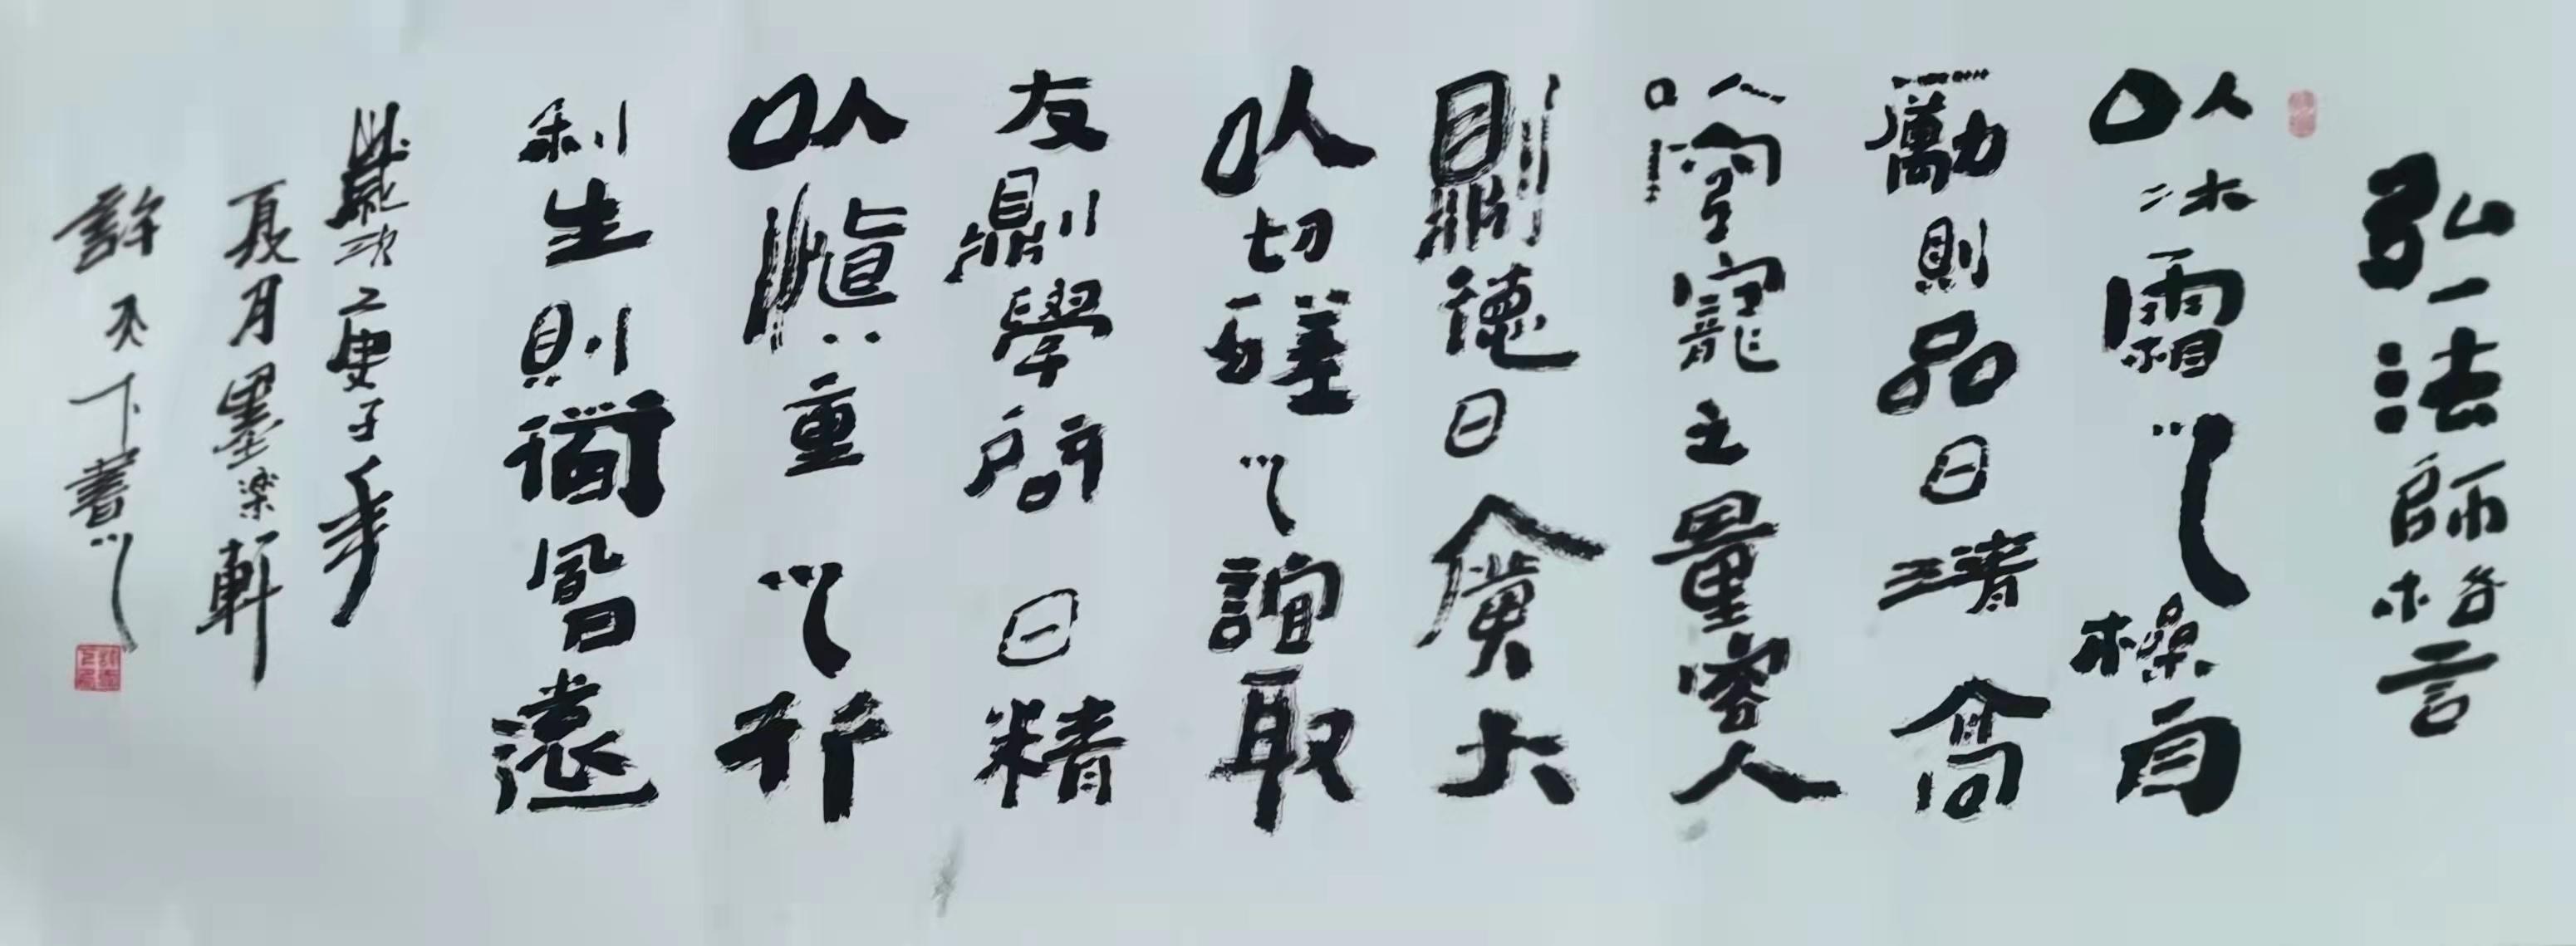 弘一法師格言
以冰霜之操自
勵則品日清高
以穹寵之量容人
則德日廣大
以切磋之誼取
友則學問日精
以慎重之行
利生則道風日遠
歲次庚子年
夏月墨楽軒
許天下書之